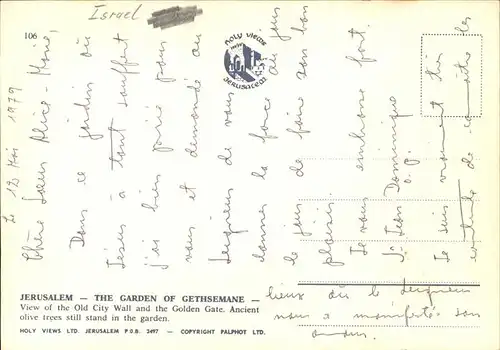 106
Israel
HOLY VIEWS
JERUSALEM
Le 12 Mai 1979
Chère Soeur Alice-Marie,
Dans ce jardin où
Jésus a tout souffert
j'ai bien prié pour
vous et demandé au
Seigneur de vous
donner la force au jour
le jour de faire son bon
plaisir.
Je vous embrasse fort.
Sr Jean Dominique
o.p.
Je suis vraiment très
contente de connaître les
lieux où le Seigneur
nous a manifesté son
amour.
JERUSALEM — THE GARDEN OF GETHSEMANE —
View of the Old City Wall and the Golden Gate. Ancient
olive trees still stand in the garden.
HOLY VIEWS LTD. JERUSALEM P.O.B. 2497 — COPYRIGHT PALPHOT LTD.